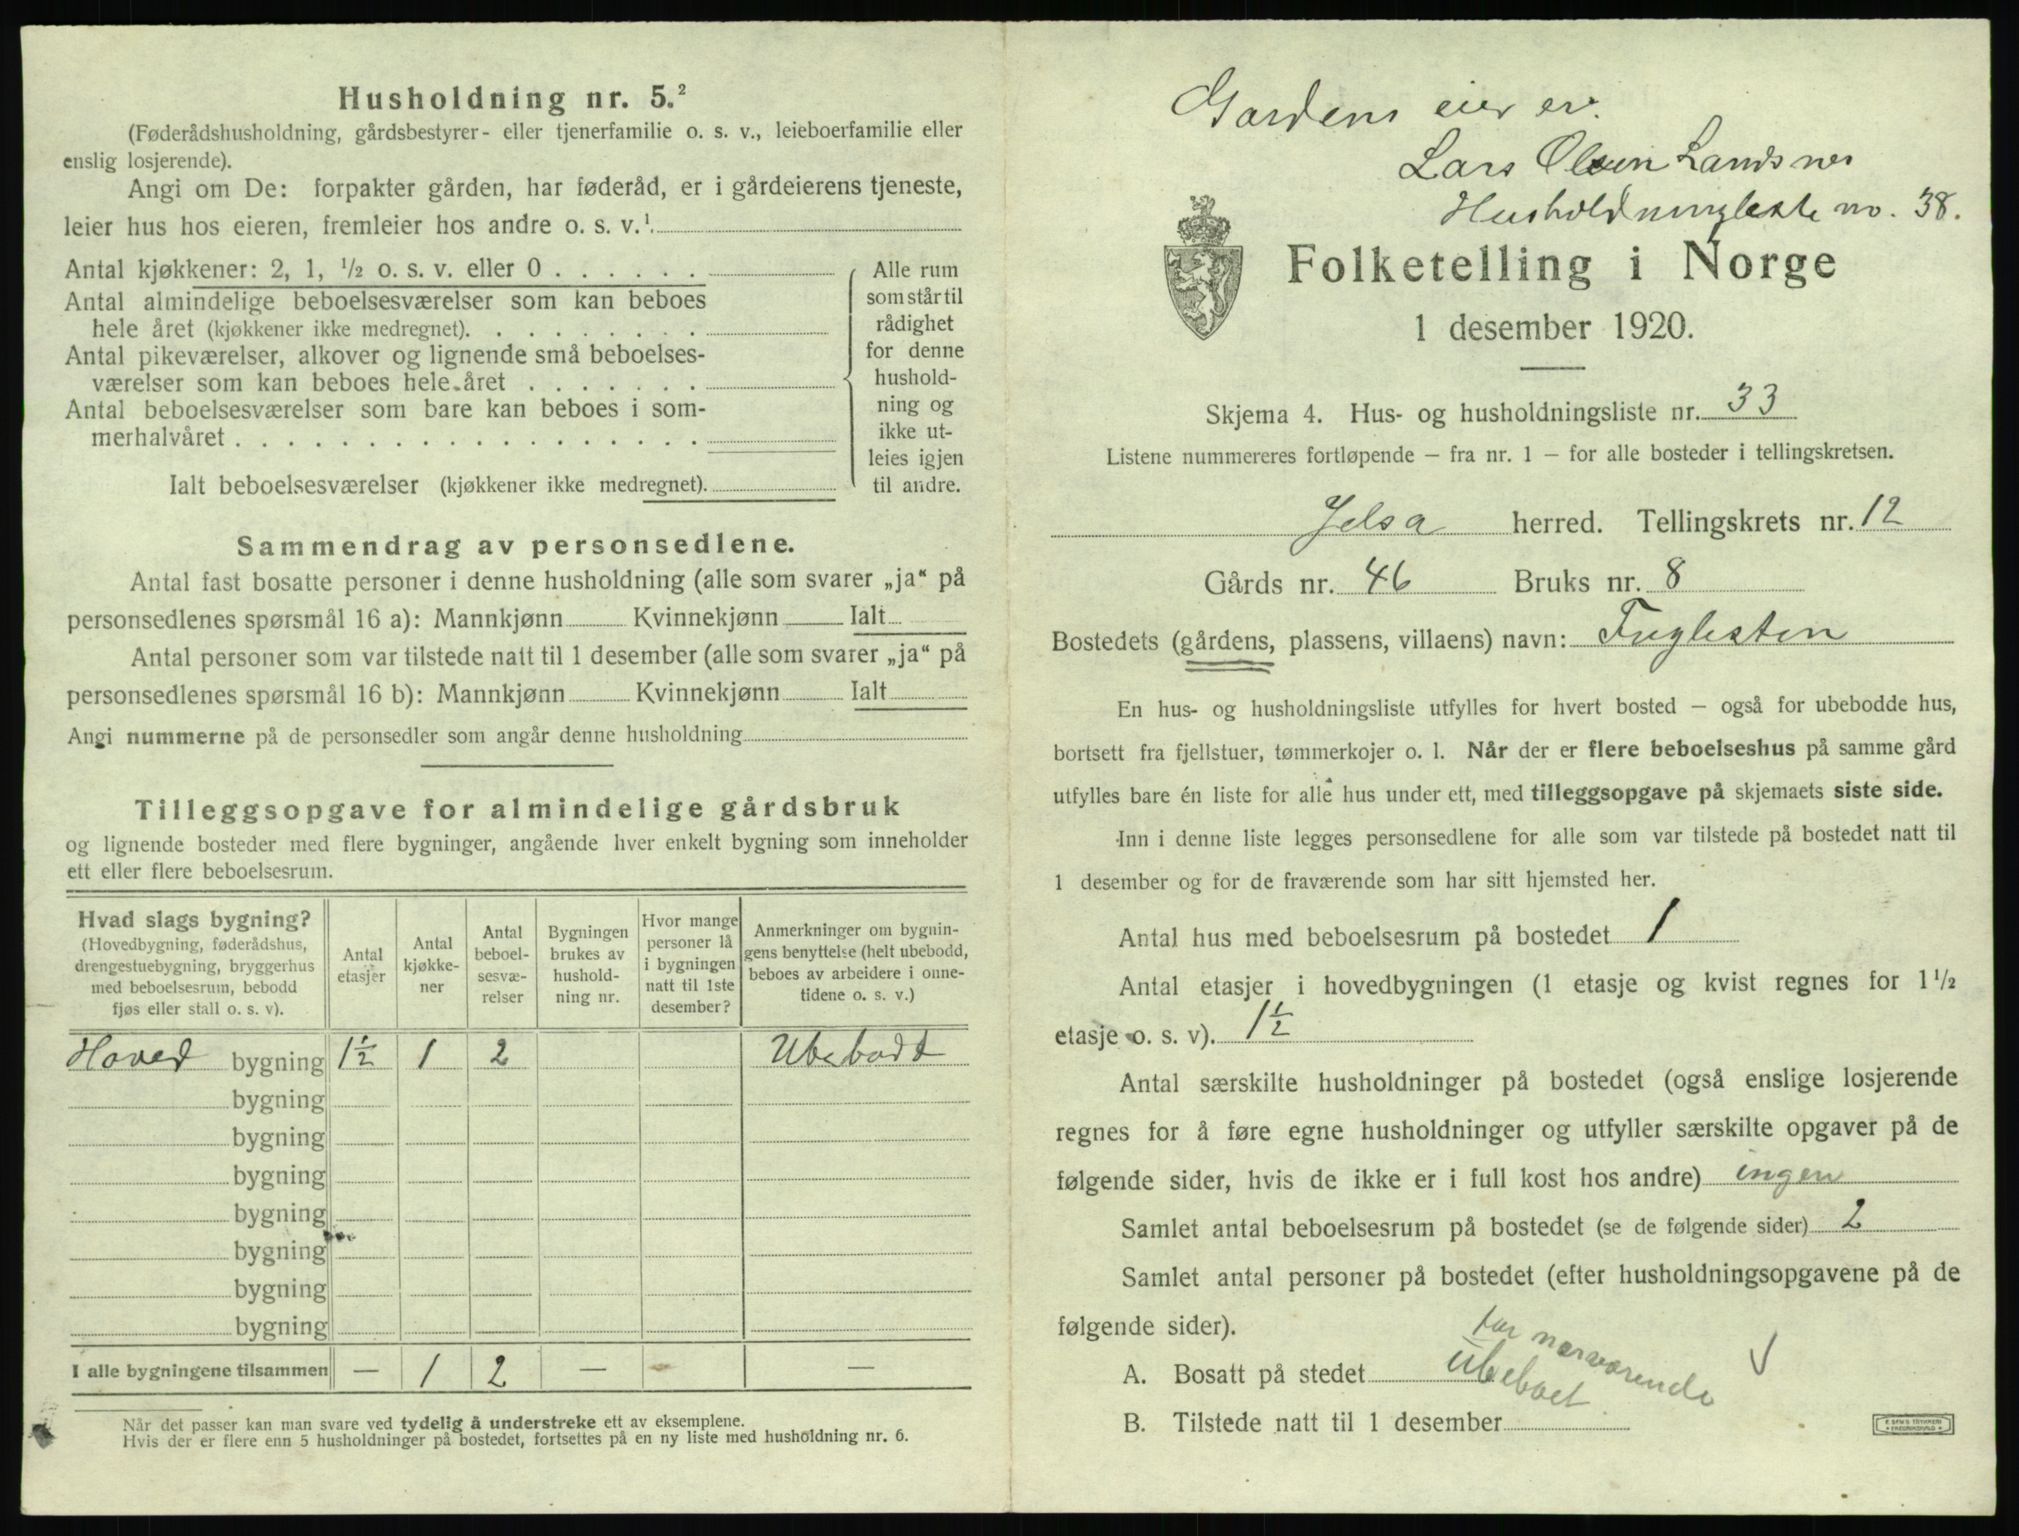 Husholdning nr. 5.²
(Føderådshusholdning, gårdsbestyrer- eller tjenerfamilie o. s. v., leieboerfamilie eller
enslig losjerende).
Angi om De: forpakter gården, har føderåd, er i gårdeierens tjeneste,
leier hus hos eieren, fremleier hos andre o. s. v.¹
Antal kjøkkener: 2, 1, ½ o. s. v. eller 0
Antal almindelige beboelsesværelser som kan beboes
hele året (kjøkkener ikke medregnet).
Antal pikeværelser, alkover og lignende små beboelses-
værelser som kan beboes hele året
Antal beboelsesværelser som bare kan beboes i som-
merhalvåret
Ialt beboelsesværelser (kjøkkener ikke medregnet).
Alle rum
som står til
rådighet
for denne
hushold-
ning og
ikke ut-
leies igjen
til andre.
Sammendrag av personsedlene.
Antal fast bosatte personer i denne husholdning (alle som svarer „ja“ på
personsedlenes spørsmål 16 a): Mannkjønn Kvinnekjønn Ialt
Antal personer som var tilstede natt til 1 desember (alle som svarer „ja“ på
personsedlenes spørsmål 16 b): Mannkjønn Kvinnekjønn Ialt
Angi nummerne på de personsedler som angår denne husholdning
Tilleggsopgave for almindelige gårdsbruk
og lignende bosteder med flere bygninger, angående hver enkelt bygning som inneholder
ett eller flere beboelsesrum.
Hvad slags bygning?
(Hovedbygning, føderådshus,
drengestuebygning, bryggerhus
med beboelsesrum, bebodd
fjøs eller stall o. s. v).
Antal
etasjer
Antal
kjøkke-
ner
Antal
beboel-
sesvæ-
relser
Bygningen
brukes av
hushold-
ning nr.
Hvor mange
personer lå
i bygningen
natt til 1ste
desember?
Anmerkninger om bygnin-
gens benyttelse (helt ubebodd,
beboes av arbeidere i onne-
tidene o. s. v.)
Hoved bygning 1½ 1 2 Ubebodd
bygning
bygning
bygning
bygning
bygning
bygning
bygning
I alle bygningene tilsammen — 1 2 — - —
Når det passer kan man svare ved tydelig å understreke ett av eksemplene.
Hvis der er flere enn 5 husholdninger på bostedet, fortsettes på en ny liste med husholdning nr. 6.
Gardens eier er.
Lars Olsen Landsnes
Husholdningleste no. 38.
Folketelling i Norge
1 desember 1920.
Skjema 4. Hus- og husholdningsliste nr. 33
Listene nummereres fortløpende – fra nr. 1 – for alle bosteder i tellingskretsen.
Jelsa herred. Tellingskrets nr. 12
Gårds nr. 46 Bruks nr. 8
Bostedets (gårdens, plassens, villaens) navn: Fuglesten
En hus- og husholdningsliste utfylles for hvert bosted – også for ubebodde hus,
bortsett fra fjellstuer, tømmerkojer o. l. Når der er flere beboelseshus på samme gård
utfylles bare én liste for alle hus under ett, med tilleggsopgave på skjemaets siste side.
Inn i denne liste legges personsedlene for alle som var tilstede på bostedet natt til
1 desember og for de fraværende som har sitt hjemsted her.
Antal hus med beboelsesrum på bostedet 1
Antal etasjer i hovedbygningen (1 etasje og kvist regnes for 1½
etasje o. s. v). 1½
Antal særskilte husholdninger på bostedet (også enslige losjerende
regnes for å føre egne husholdninger og utfyller særskilte opgaver på de
følgende sider, hvis de ikke er i full kost hos andre) ingen
Samlet antal beboelsesrum på bostedet (se de følgende sider) 2
Samlet antal personer på bostedet (efter husholdningsopgavene på de
følgende sider).
for nærværende √
A. Bosatt på stedet ubeboet
B. Tilstede natt til 1 desember